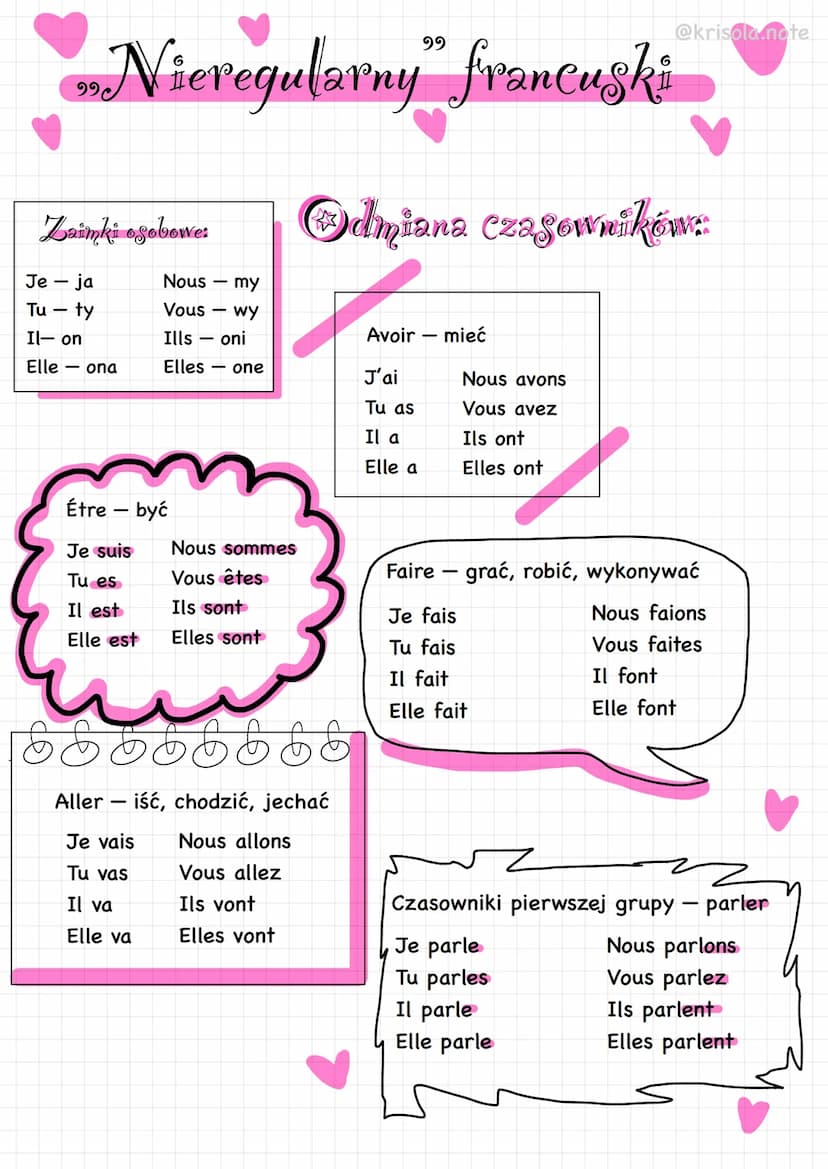 @krisola.note
„Nieregularny” francuski
Zaimki osobowe:
Je – ja
Tu – ty
Il– on
Elle – ona
Nous – my
Vous – wy
Ills – oni
Elles – one
Odmiana czasowników:
Avoir – mieć
J’ai
Tu as
Il a
Elle a
Nous avons
Vous avez
Ils ont
Elles ont
Étre – być
Je suis
Tu es
Il est
Elle est
Nous sommes
Vous êtes
Ils sont
Elles sont
Faire – grać, robić, wykonywać
Je fais
Tu fais
Il fait
Elle fait
Nous faions
Vous faites
Il font
Elle font
Aller – iść, chodzić, jechać
Je vais
Tu vas
Il va
Elle va
Nous allons
Vous allez
Ils vont
Elles vont
Czasowniki pierwszej grupy – parler
Je parle
Tu parles
Il parle
Elle parle
Nous parlons
Vous parlez
Ils parlent
Elles parlent